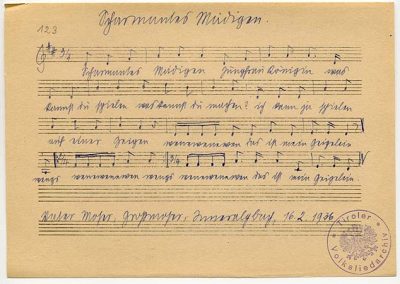 Scharmantes Madigen.
123
Scharmantes Madigen Jungfrau Königin was
kannst du spielen was kannst du machen? ich kann ja spielen
auf einer Geigen wenewenewen das ist mein Geigelein
wenewenewen wengs wenewenewen das ist mein Geigelein.
Peter Moser, Großmoser, Inneralpbach, 16. 2. 1936
Tiroler
Volksliedarchiv